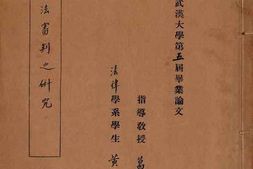 武漢大學第五屆畢業論文
指導教授
法律學系學生 黄
法審判之研究